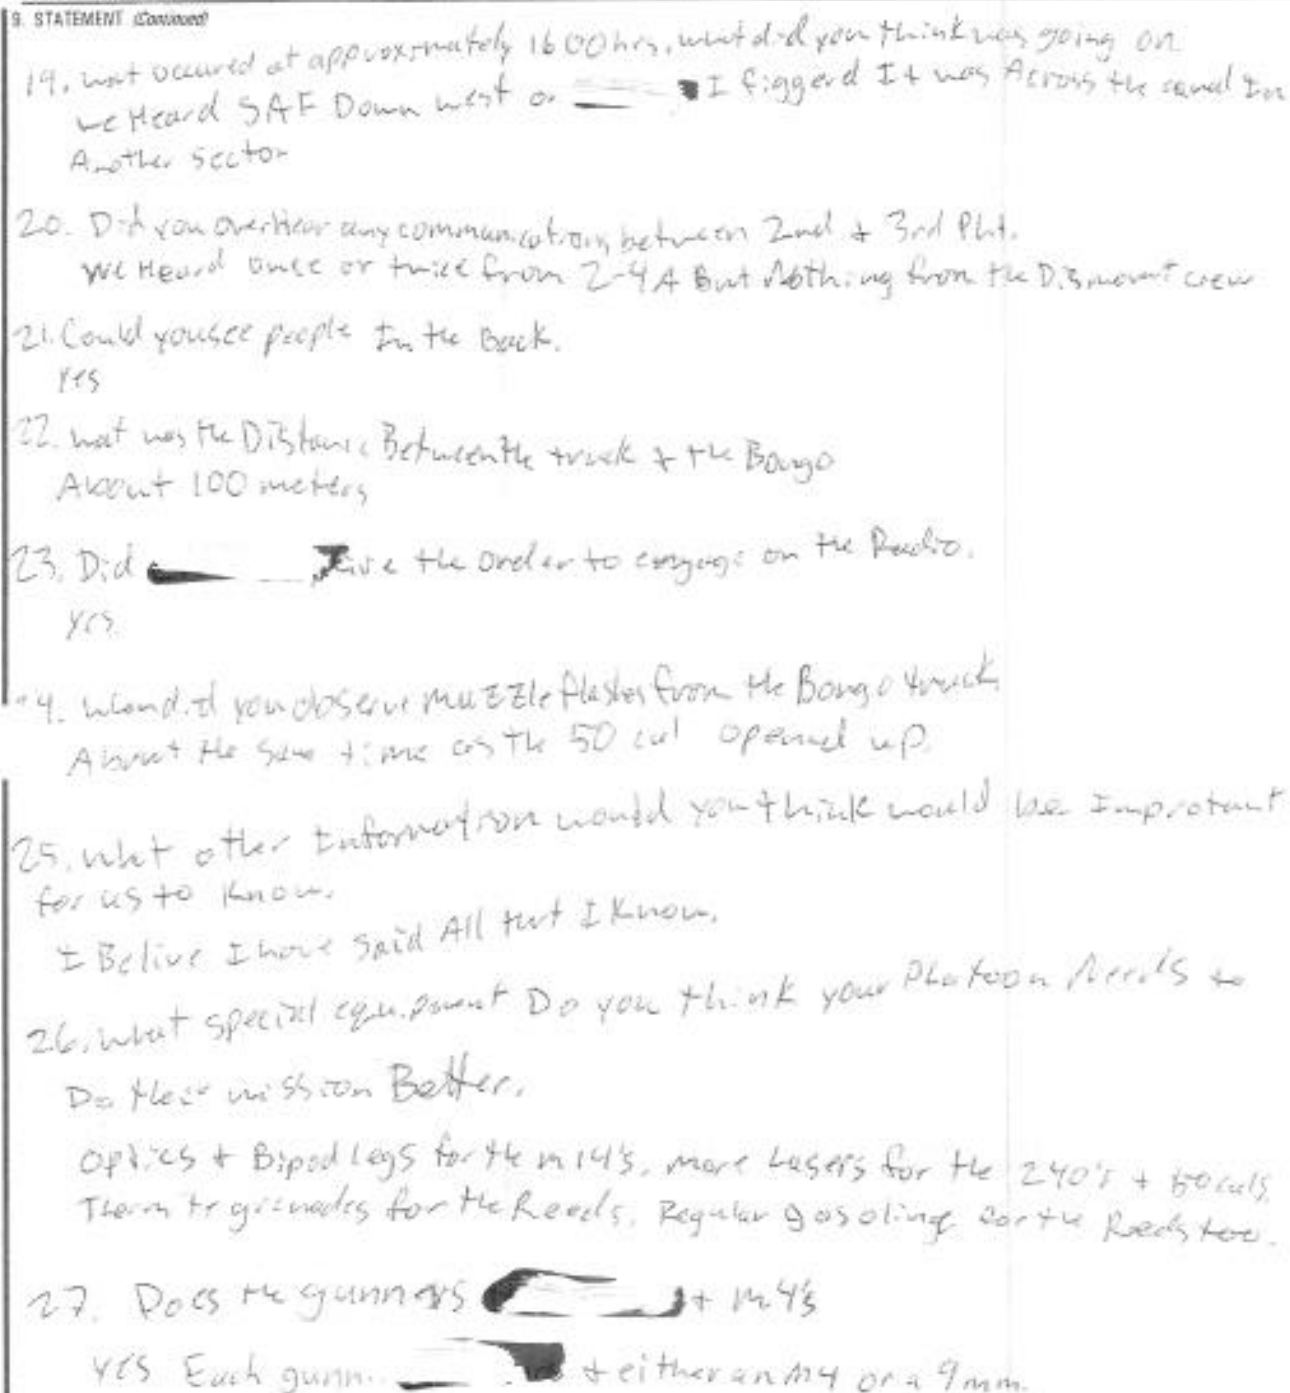 9. STATEMENT (Continued)
19. what occured at approxmately 1600hrs, what did you think was going on
we Heard SAF Down west o. I figgerd It was Across the canal In
Another sector
20. Did you overHear any communications between 2nd + 3rd Plt.
We Heard once or twice from 2-4A But Nothing from the Dismount crew
21. Could you see people In the Back.
Yes
22. what was the Distance Between the truck + the Bongo
About 100 meters
23. Did Give the order to engage on the Radio.
yes.
4. When did you observe muzzle flashes from the Bongo truck.
About the same time as the 50 cal opened up.
25. what other Information would you think would be Improtant
for us to Know.
I Belive I have said All that I Know.
26. what special equipment Do you think your Platoon Needs to
Do their mission Better.
Optics + Bipod legs for the m14's, more Lasers for the 240's + 50 cals,
grenades for the Reeds, Regular gasoline for the Reeds too.
27. Does the gunners + m4's
yes Each gunn. + either an M4 or a 9mm.